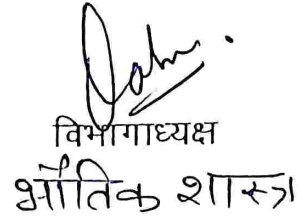 विभागाध्यक्ष
भौतिक शास्त्र